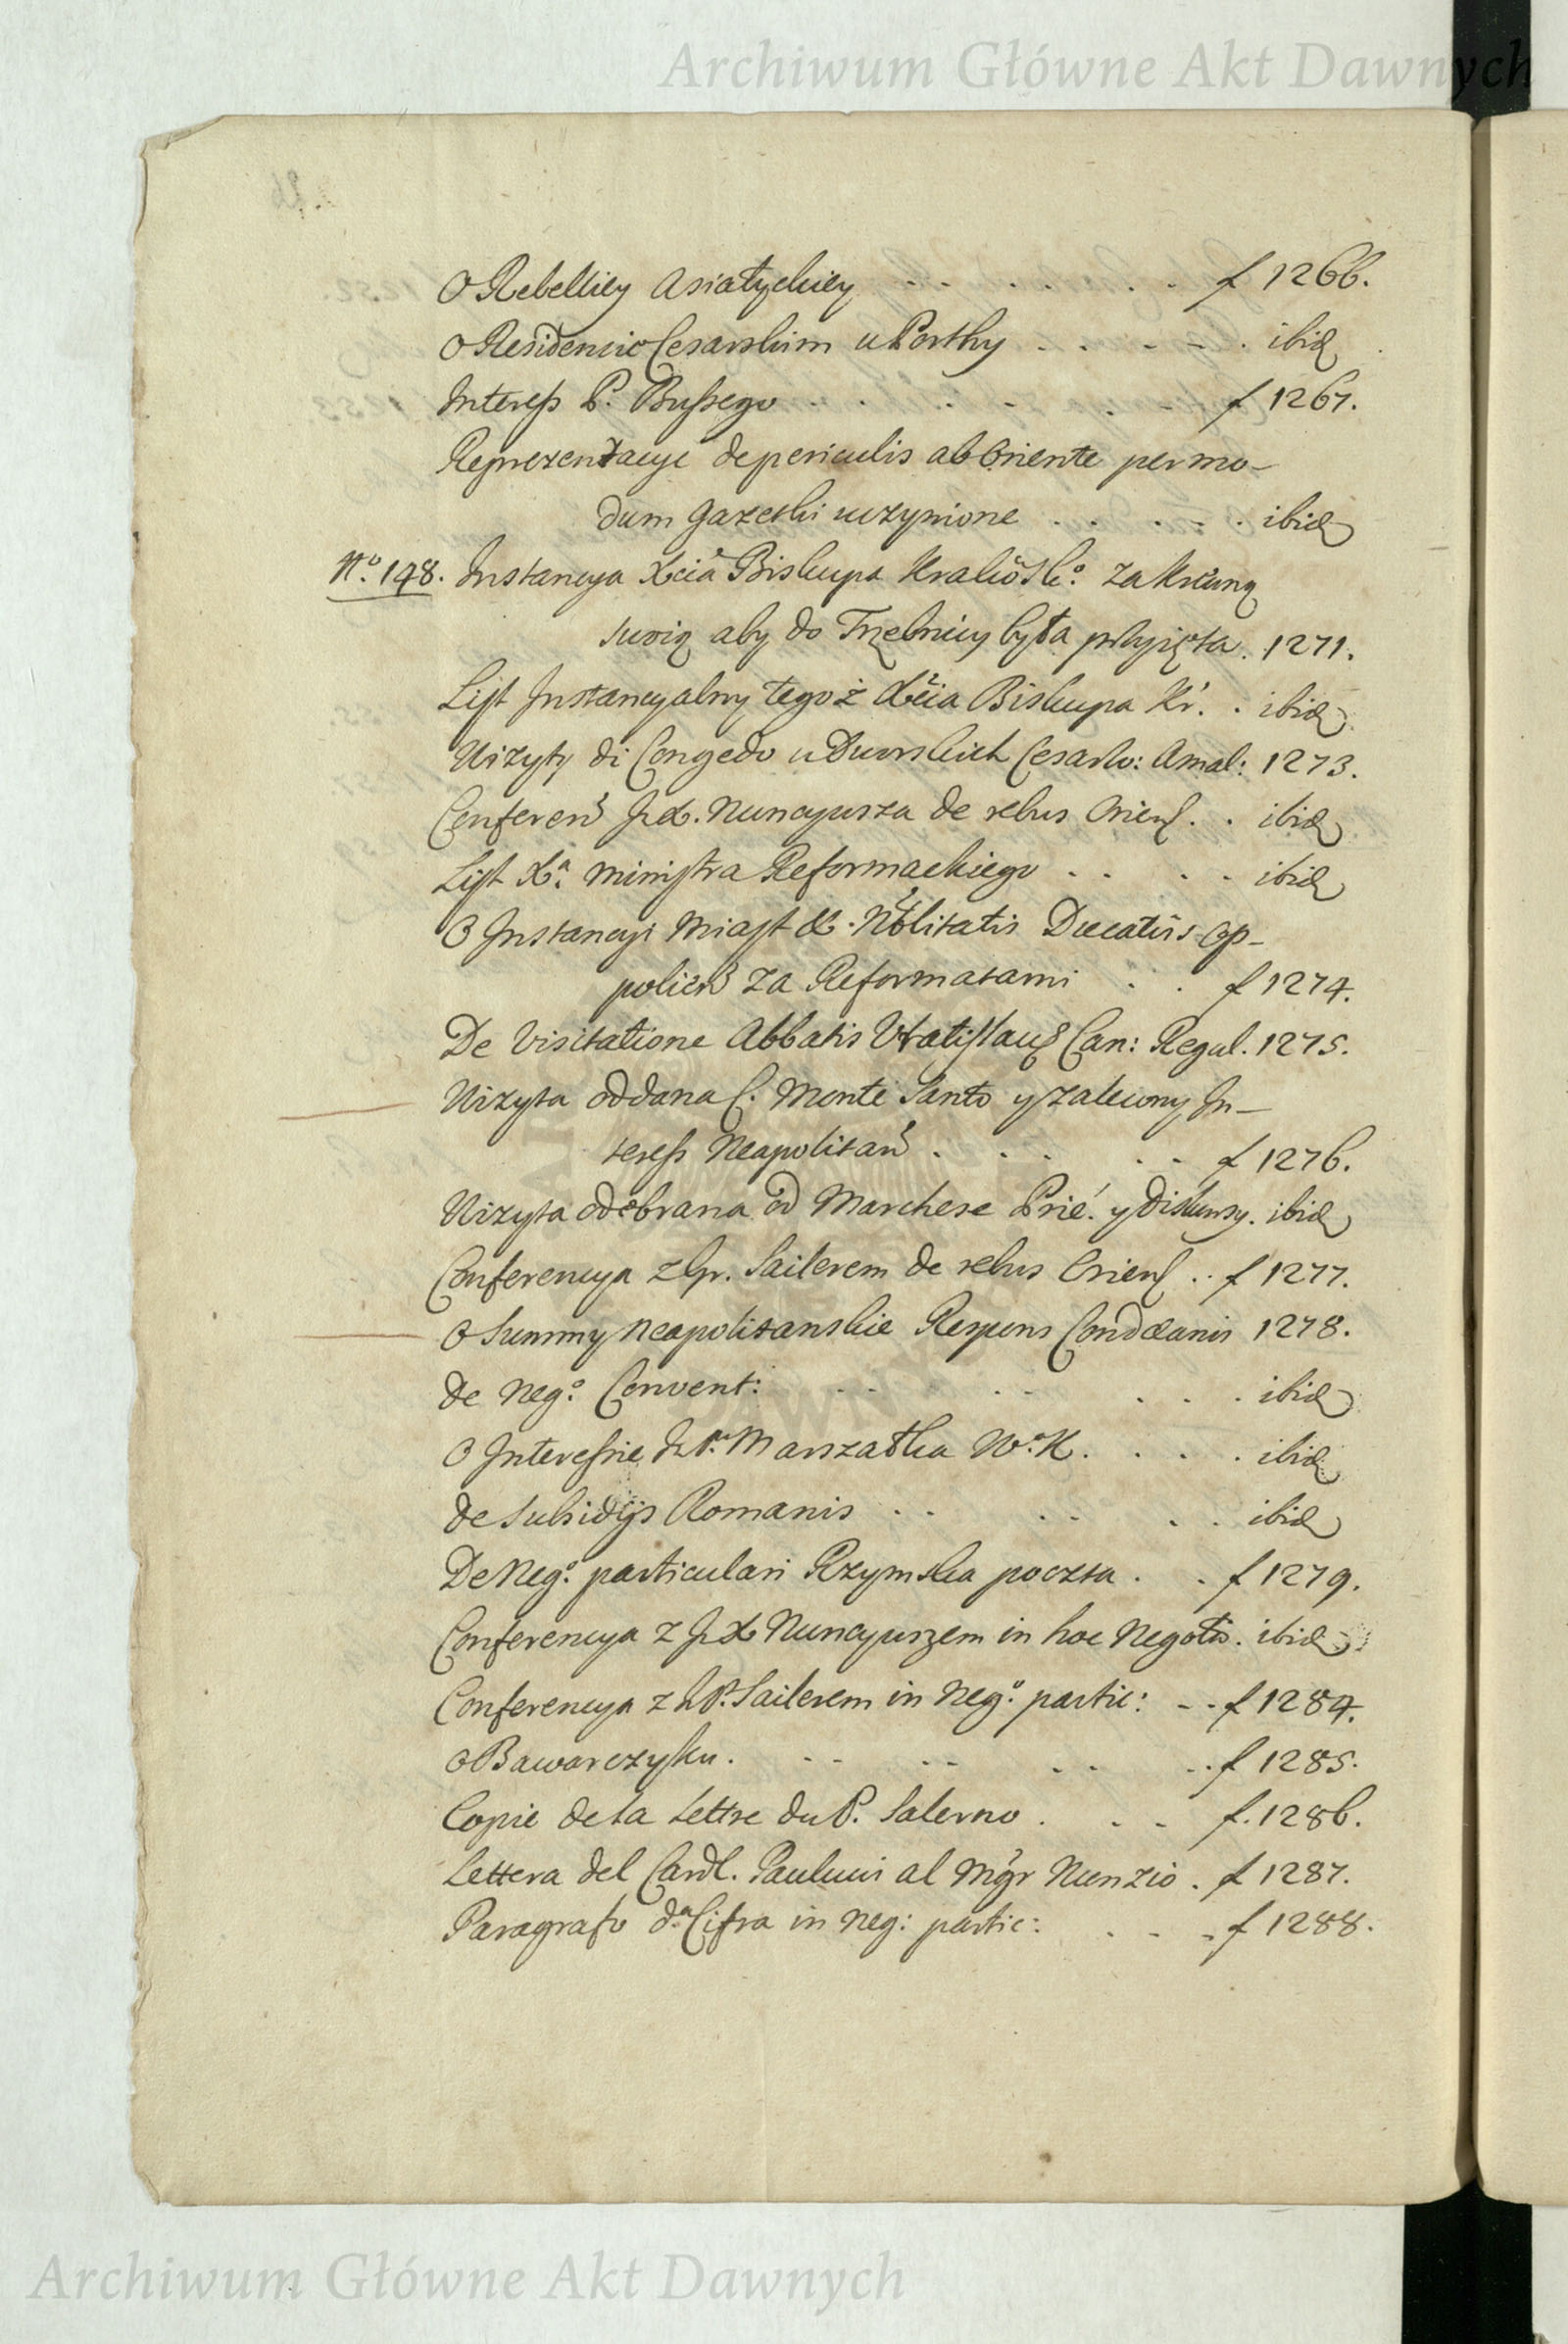 Archiwum Główne Akt Dawnych
O Rebelliey Asiatyckiey . . . . . . f 1266.
O Residencie Cesarskim u Porthy . . . . . ibid
Interess P. Bussego . . . . . . f 1267.
Reprezentacye de periculis ab Oriente per mo-
dum gazetki uczynione . . . . . ibid
No. 148. Instancya Xcia Biskupa Krakosko. za Krewną
swoią aby do Trzebnicy była przyięta. 1271.
List Instancyalny tegoż Xcia Biskupa Kr. . ibid
Wizyty di Congedo u Dworskich Cesarzo: Amal: 1273.
Conferen JX. Nuncyusza de rebus Orient. . ibid
List Xa. Ministra Reformackiego . . . . ibid
O Instancyi Miast & Nobilitatis Ducatus Op-
polien za Reformatami . . f 1274.
De Visitatione Abbatis Vratislav Can: Regul. 1275.
Wizyta oddana C. Monte Santo y zalecony In-
teress Neapolitan . . . . . f 1276.
Wizyta odebrana od Marchese Prié. y Diskursy. ibid
Conferencya z Gr. Sailerem de rebus Orient . . f 1277.
O Summy Neapolitanskie Respons Conddanis 1278.
De Nego. Convent: . . . . . . . ibid
O Interessie JP. Marszałka W.K. . . . . ibid
de Subsidijs Romanis . . . . . . ibid
De Nego. particulari Rzymska poczta . . f 1279.
Conferencya z JX Nuncyuszem in hoc Negotio. ibid
Conferencya z JP. Sailerem in Nego. partic: . . f 1284.
O Bawarczysku . . . . . . . . . f 1285.
Copie de la Lettre du P. Salerno . . . f. 1286.
Lettera del Cardl. Paulucci al Mgr Nunzio . f 1287.
Paragrafo da Cifra in neg: partic: . . . f 1288.
Archiwum Główne Akt Dawnych